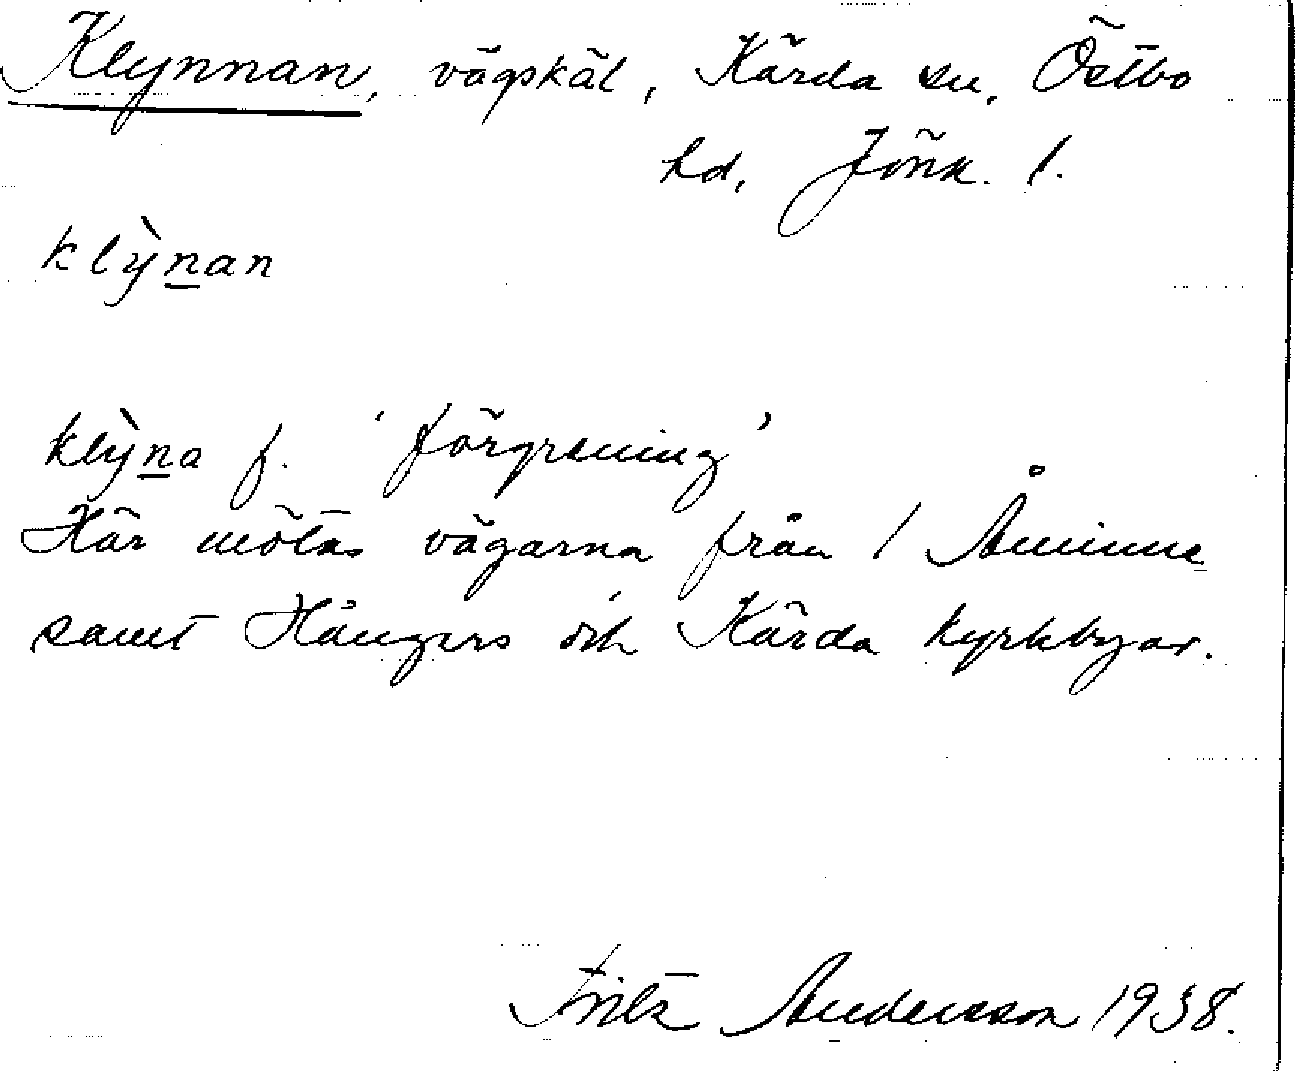 Klynnan, vägskäl, Kärda sn, Östbo
hd, Jönk. l.
klỳṉan
klỳṉa f. 'förgrening'
Här mötas vägarna från / Åminne
samt Hångers och Kärda kyrkbyar.
Fritz Andersson 1938.